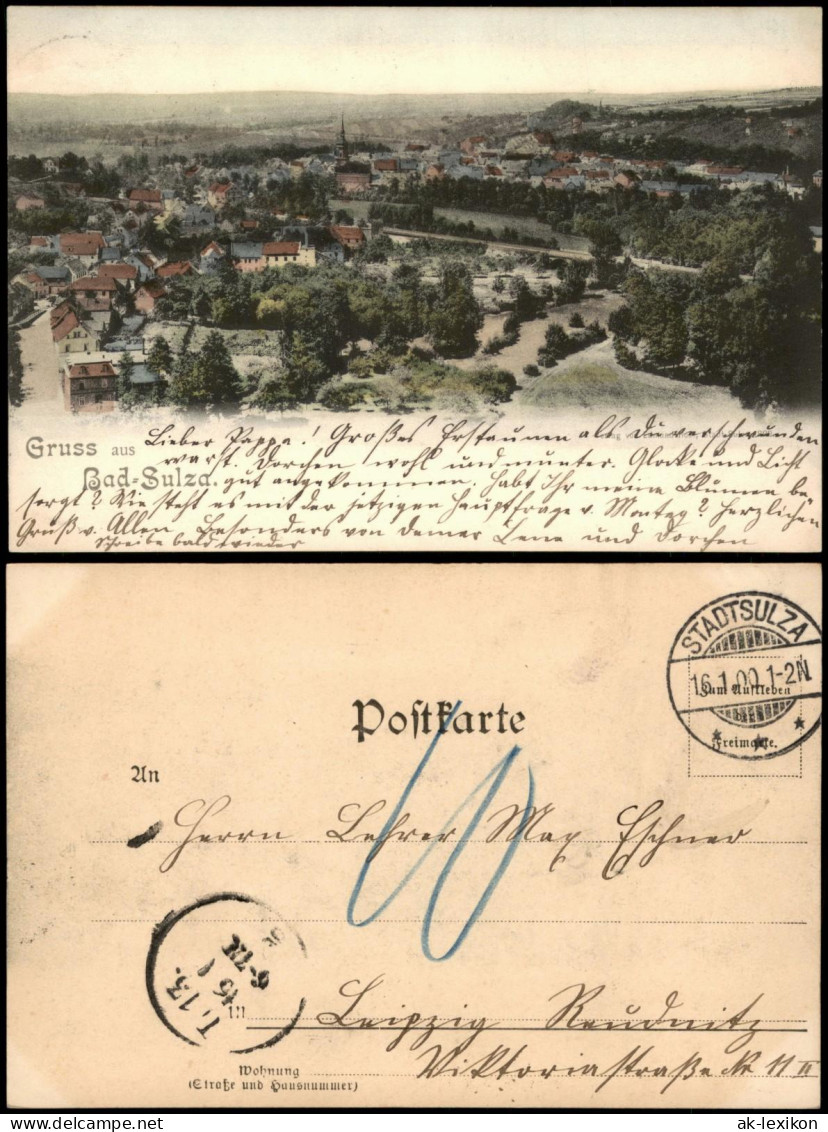 Gruss aus
Bad-Sulza.
Lieber Pappa! Großes Erstaunen als Du verschwunden
warst. Dorchen wohl und munter. Glocke und Licht
gut angekommen. Habt Ihr meine Blumen be-
sorgt? Wie steht es mit der jetzigen Hauptfrage v. Montag? Herzlichen
Gruß v. Allen besonders von Deiner Lene und Dorchen
Schreibe bald wieder
Postkarte
STADTSULZA
16.1.00.1-2N
Zum Aufkleben
Freimarke.
An
Herrn Lehrer Max Eschner
10
in
Leipzig Reudnitz
Viktoriastraße Nr 11 II
Wohnung
(Straße und Hausnummer)
L.13.
ak-lexikon ak-lexikon.com